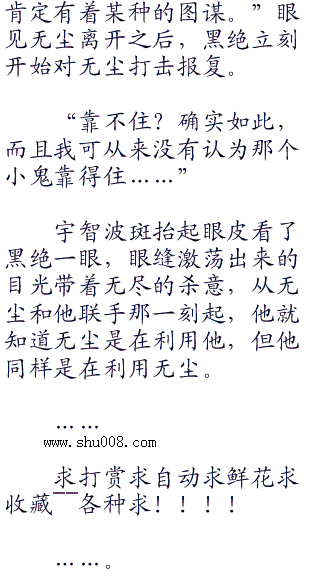 肯定有着某种的图谋。”眼
见无尘离开之后，黑绝立刻
开始对无尘打击报复。
“靠不住？确实如此，
而且我可从来没有认为那个
小鬼靠得住……”
宇智波斑抬起眼皮看了
黑绝一眼，眼缝激荡出来的
目光带着无尽的杀意，从无
尘和他联手那一刻起，他就
知道无尘是在利用他，但他
同样是在利用无尘。
……
www.shu008.com
求打赏求自动求鲜花求
收藏——各种求！！！！
……。